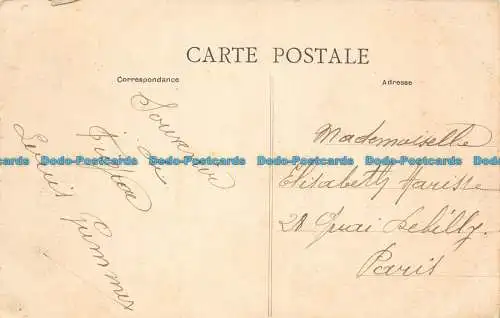 CARTE POSTALE
Correspondance
Adresse
Souvenir
de
Mademoiselle
Elisabeth Harisse
28 Quai Debilly
Paris
Dodo-Postcards Dodo-Postcards Dodo-Postcards Dodo-Postcards Dodo-Postcards